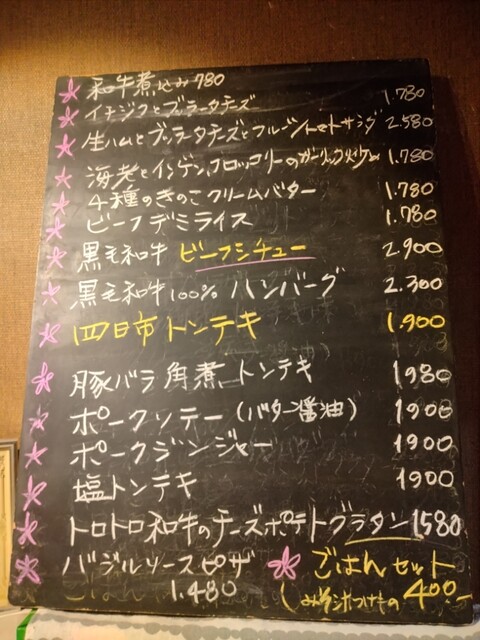 和牛煮込み 780
イチジクとブッラータチーズ 1.780
生ハムとブッラータチーズとフルーツトマトサラダ 2.580
海老とインゲン、ブロッコリーのガーリック炒め 1.780
4種のきのこクリームバター 1.780
ビーフデミライス 1.780
黒毛和牛 ビーフシチュー 2.900
黒毛和牛100% ハンバーグ 2.300
四日市トンテキ 1.900
豚バラ角煮トンテキ 1980
ポークソテー(バター醤油) 1900
ポークジンジャー 1900
塩トンテキ 1900
トロトロ和牛のチーズポテトグラタン 1580
バジルソースピザ 1.480
ごはんセット
みそ汁つけもの 400-